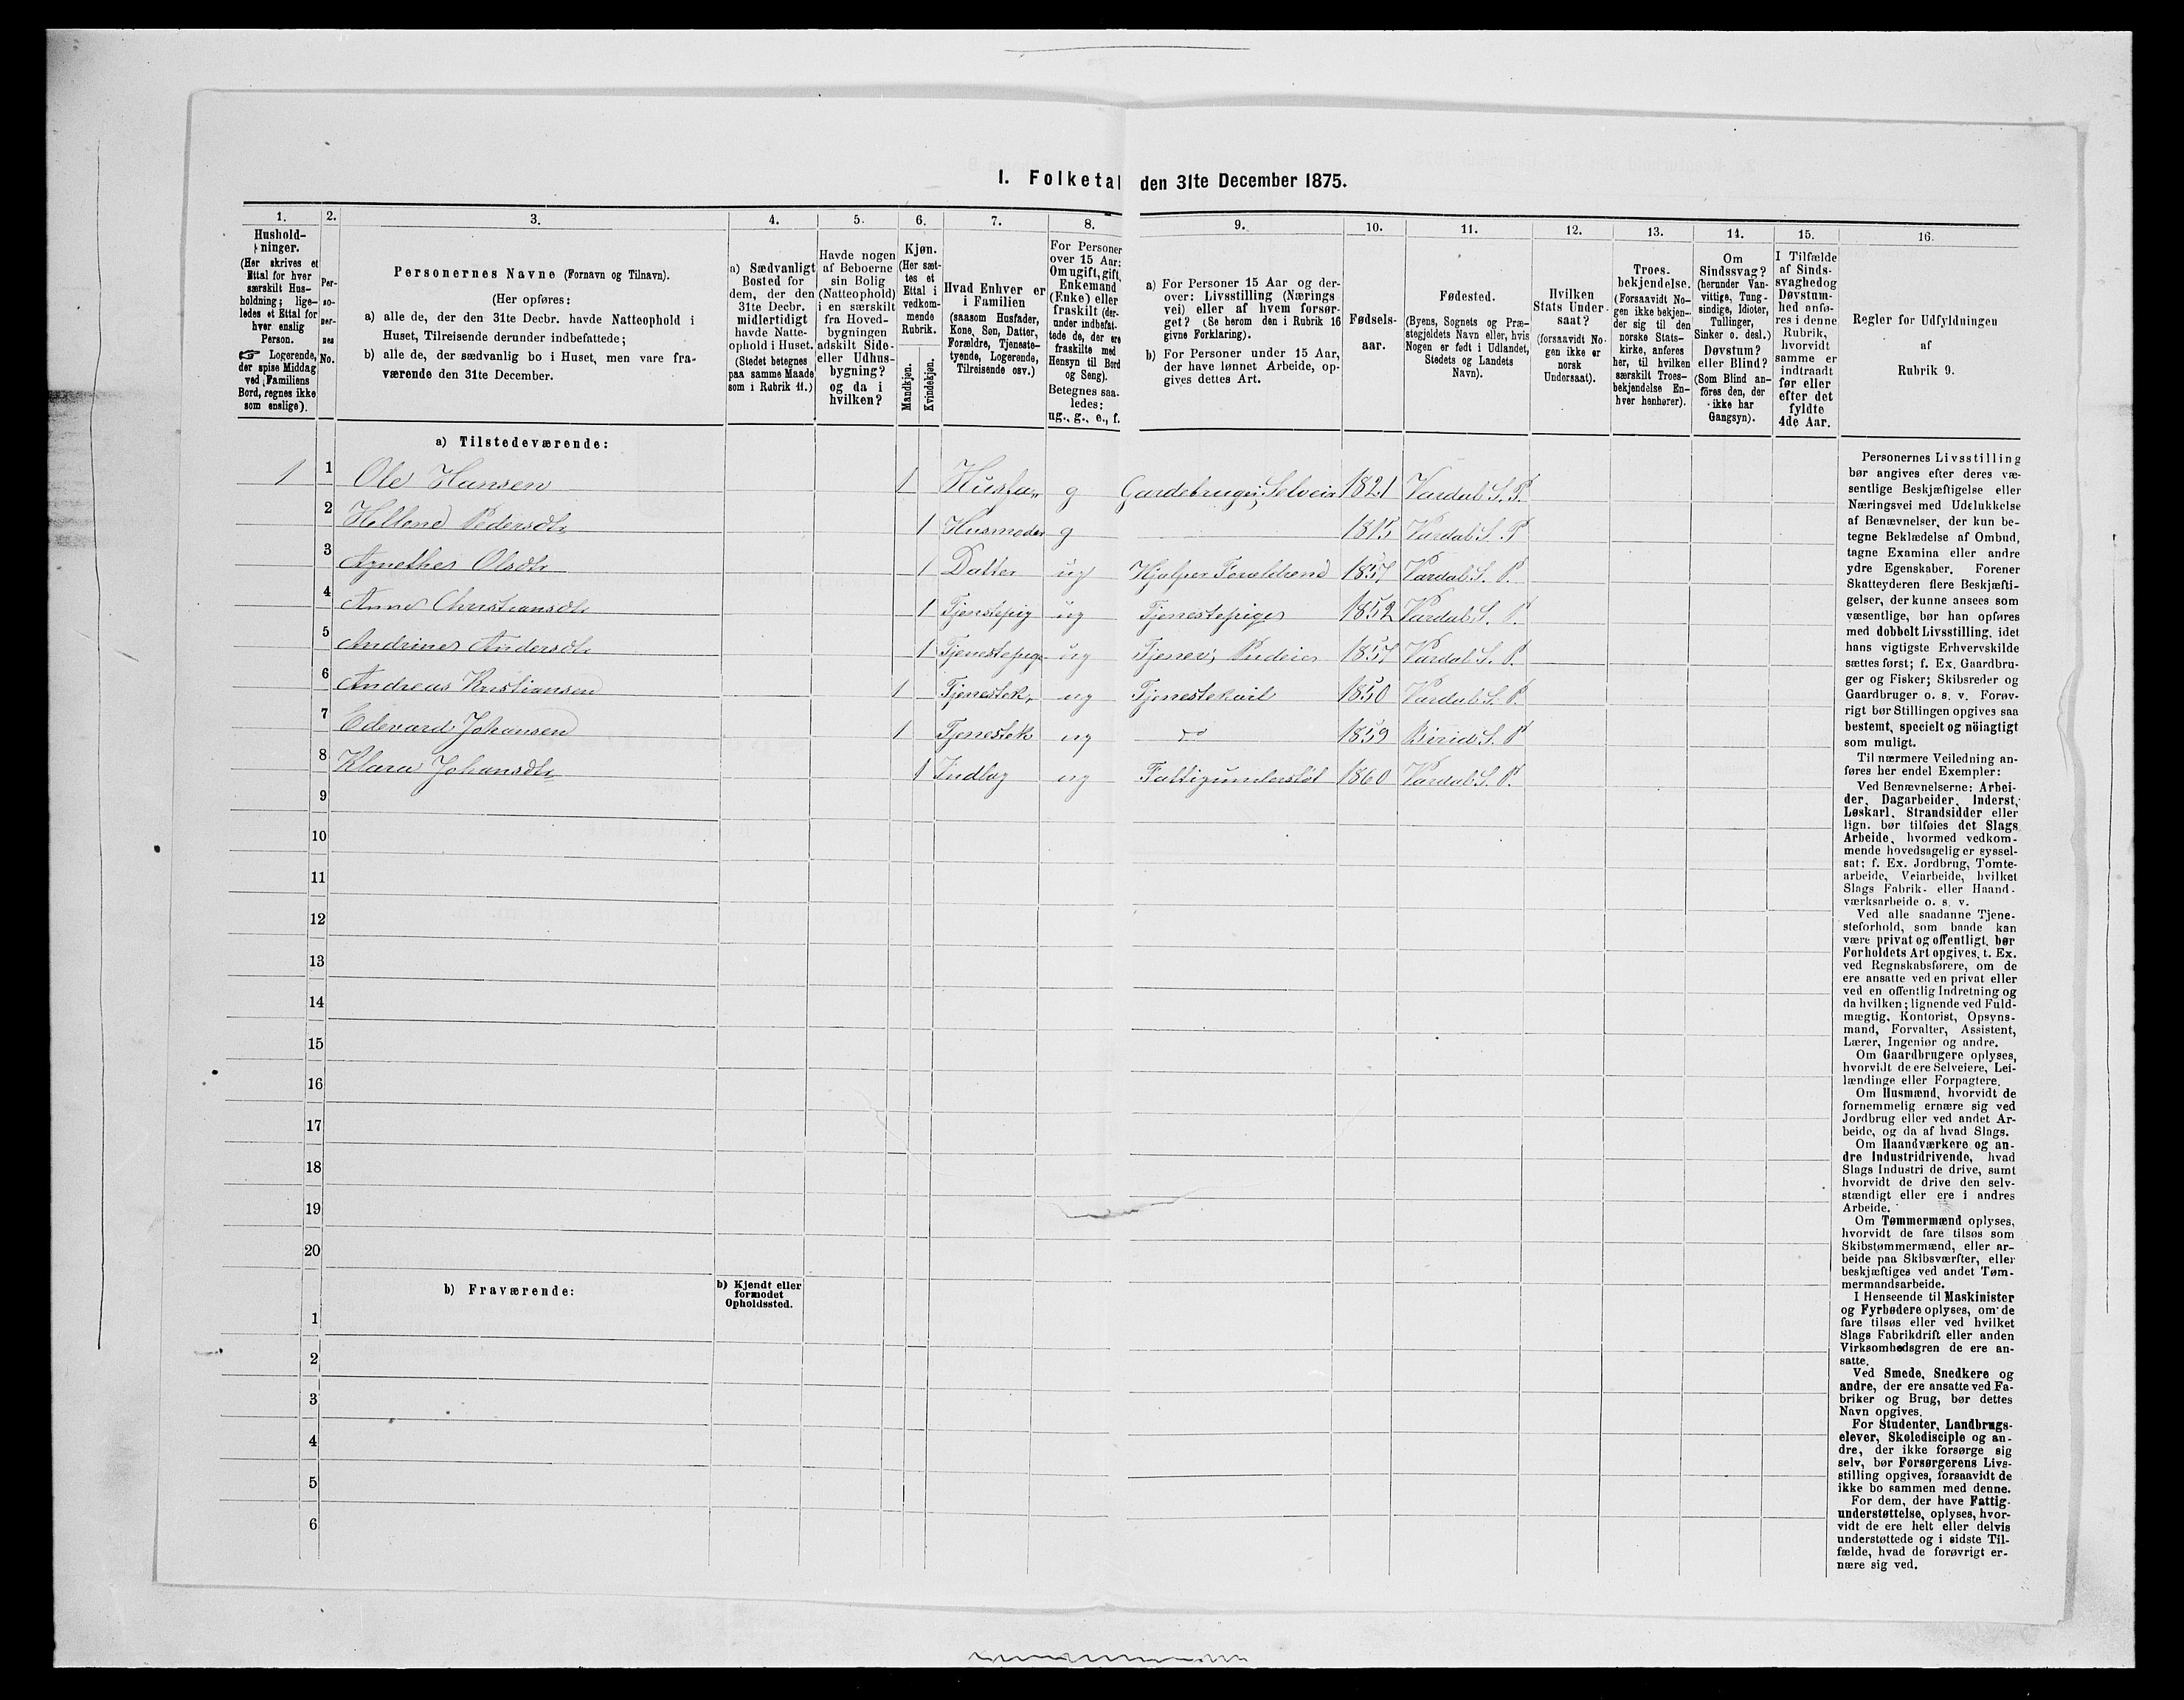 I. Folketal den 31te December 1875.
1. 2. 3. 4. 5. 6. 7. 8. 9. 10. 11. 12. 13. 14. 15. 16.
Hushold-
ninger.
(Her skrives et
Ettal for hver
særskilt Hus-
holdning; lige-
ledes et Ettal for
hver enslig
Person.
☞ Logerende,
der spise Middag
ved Familiens
Bord, regnes ikke
som enslige).
Per-
so-
ner-
nes
No.
Personernes Navne (Fornavn og Tilnavn).
(Her opføres:
a) alle de, der den 31te Decbr. havde Natteophold i
Huset, Tilreisende derunder indbefattede;
b) alle de, der sædvanlig bo i Huset, men vare fra-
værende den 31te December.
a) Sædvanligt
Bosted for
dem, der den
31te Decbr.
midlertidigt
havde Natte-
ophold i Huset.
(Stedet betegnes
paa samme Maade
som i Rubrik 11.)
Havde nogen
af Beboerne
sin Bolig
(Natteophold)
i en særskilt
fra Hoved-
bygningen
adskilt Side-
eller Udhus-
bygning?
og da i
hvilken?
Kjøn.
(Her sæt-
tes et
Ettal i
vedkom-
mende
Rubrik.
Mandkjøn.
Kvindekjøn.
Hvad Enhver er
i Familien
(saasom Husfader,
Kone, Søn, Datter,
Forældre, Tjeneste-
tyende, Logerende,
Tilreisende osv.)
For Personer
over 15 Aar:
Om ugift, gift,
Enkemand
(Enke) eller
fraskilt (der-
under indbefat-
tede de, der ere
fraskilte med
Hensyn til Bord
og Seng).
Betegnes saa-
ledes:
ug., g., e., f.
a) For Personer 15 Aar og der-
over: Livsstilling (Nærings
vei) eller af hvem forsør-
get? (Se herom den i Rubrik 16
givne Forklaring).
b) For Personer under 15 Aar,
der have lønnet Arbeide, op-
gives dettes Art.
Fødsels-
aar.
Fødested.
(Byens, Sognets og Præ-
stegjeldets Navn eller, hvis
Nogen er født i Udlandet,
Stedets og Landets
Navn).
Hvilken
Stats Under-
saat?
(forsaavidt No-
gen ikke er
norsk
Undersaat).
Troes-
bekjendelse.
(Forsaavidt No-
gen ikke bekjen-
der sig til den
norske Stats-
kirke, anføres
her, til hvilken
særskilt Troes-
bekjendelse En-
hver henhører).
Om
Sindssvag?
(herunder Van-
vittige, Tung-
sindige, Idioter,
Tullinger,
Sinker o. desl.)
Døvstum?
eller Blind?
(Som Blind an-
føres den, der
ikke har
Gangsyn).
I Tilfælde
af Sinds-
svaghed og
Døvstum-
hed anfø-
res i denne
Rubrik,
hvorvidt
samme er
indtraadt
før eller
efter det
fyldte
4de Aar.
Regler for Udfyldningen
af
Rubrik 9.
a) Tilstedeværende:
1 1 Ole Hansen 1 Husfa. g Gardebruger, Selveir 1821 Vardal S. P.
2 Hellene Pedersdtr 1 Husmoder g 1815 Vardal S. P
3 Agnethe Olsdtr 1 Datter ug Hjelper Foreldrene 1857 Vardal S. P.
4 Anne Christiansdtr 1 Tjenstepig ug Tjenestepige 1852 Vardal S. P.
5 Andrine Andersdtr 1 Tjenestepige ug Tjener, 1857 Vardal S. P.
6 Andreas Kristiansen 1 Tjenestek. ug Tjenestekarl 1850 Vardal S. P.
7 Edevard Johansen 1 Tjenestek ug do 1859 Birid S. P
8 Klara Johansdtr 1 Indlag ug Fattigunderstøt 1860 Vardal S. P.
9
10
11
12
13
14
15
16
17
18
19
20
b) Fraværende:
b) Kjendt eller
formodet
Opholdssted.
1
2
3
4
5
6
Personernes Livsstilling
bør angives efter deres væ-
sentlige Beskjæftigelse eller
Næringsvei med Udelukkelse
af Benævnelser, der kun be-
tegne Beklædelse af Ombud,
tagne Examina eller andre
ydre Egenskaber. Forener
Skatteyderen flere Beskjæfti-
gelser, der kunne ansees som
væsentlige, bør han opføres
med dobbelt Livsstilling, idet
hans vigtigste Erhvervskilde
sættes først; f. Ex. Gaardbru-
ger og Fisker; Skibsreder og
Gaardbruger o. s. v. Forøv-
rigt bør Stillingen opgives saa
bestemt, specielt og nöiagtigt
som muligt.
Til nærmere Veiledning an-
føres her endel Exempler:
Ved Benævnelserne: Arbei-
der, Dagarbeider, Inderst,
Løskarl, Strandsidder eller
lign. bør tilføies det Slags
Arbeide, hvormed vedkom-
mende hovedsagelig er syssel-
sat; f. Ex. Jordbrug, Tomte-
arbeide, Veiarbeide, hvilket
Slags Fabrik- eller Haand-
værksarbeide o. s. v.
Ved alle saadanne Tjene-
steforhold, som baade kan
være privat og offentligt, bør
Forholdets Art opgives, t. Ex.
ved Regnskabsførere, om de
ere ansatte ved en privat eller
ved en offentlig Indretning og
da hvilken; lignende ved Fuld-
mægtig, Kontorist, Opsyns-
mand, Forvalter, Assistent,
Lærer, Ingeniør og andre.
Om Gaardbrugere oplyses,
hvorvidt de ere Selveiere, Lei-
lændinge eller Forpagtere.
Om Husmænd, hvorvidt de
fornemmelig ernære sig ved
Jordbrug eller ved andet Ar-
beide, og da af hvad Slags.
Om Haandværkere og an-
dre Industridrivende, hvad
Slags Industri de drive, samt
hvorvidt de drive den selv-
stændigt eller ere i andres
Arbeide.
Om Tømmermænd oplyses,
hvorvidt de fare tilsøs som
Skibstømmermænd, eller ar-
beide paa Skibsværfter, eller
beskjæftiges ved andet Tøm-
mermandsarbeide.
I Henseende til Maskinister
og Fyrbødere oplyses, om de
fare tilsøs eller ved hvilket
Slags Fabrikdrift eller anden
Virksomhedsgren de ere an-
satte.
Ved Smede, Snedkere og
andre, der ere ansatte ved Fa-
briker og Brug, bør dettes
Navn opgives.
For Studenter, Landbrugs-
elever, Skoledisciple og an-
dre, der ikke forsørge sig
selv, bør Forsørgerens Livs-
stilling opgives, forsaavidt de
ikke bo sammen med denne.
For dem, der have Fattig-
understøttelse, oplyses, hvor-
vidt de ere helt eller delvis
understøttede og i sidste Til-
fælde, hvad de forøvrigt er-
nære sig ved.